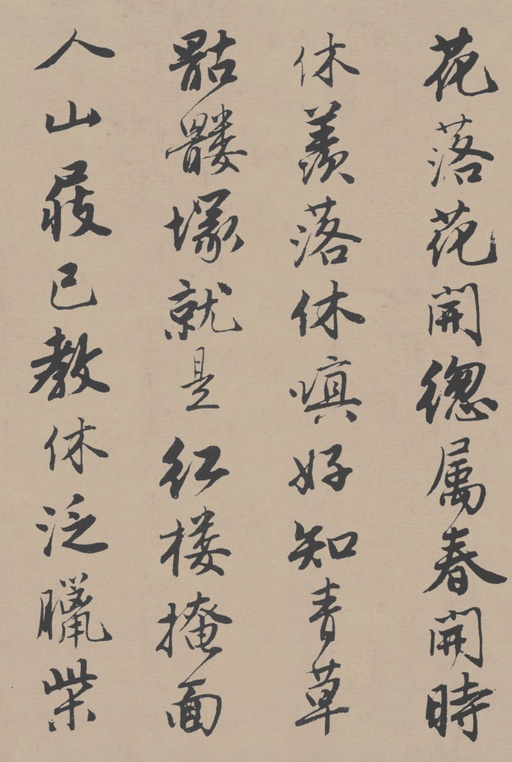 花落花開總属春開時
休羨落休嗔好知青草
骷髏塚就是紅楼掩面
人山屐已教休泛臘柴